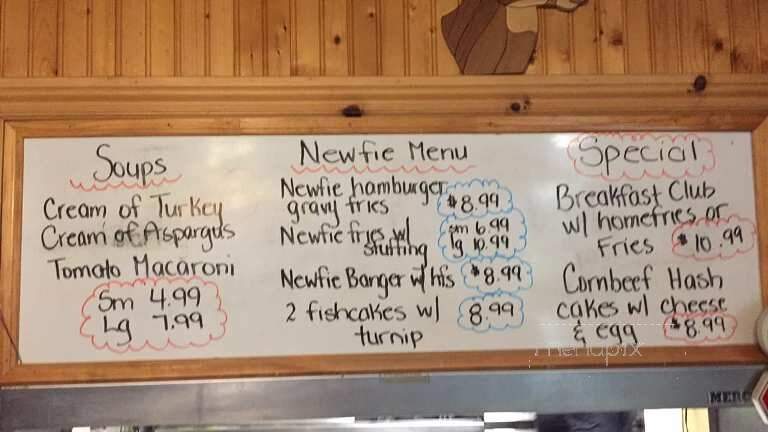 Soups
Cream of Turkey
Cream of Aspargus
Tomato Macaroni
Sm 4.99
Lg 7.99
Newfie Menu
Newfie hamburger
gravy fries
$8.99
Newfie fries w/
stuffing
sm 6.99
lg 10.99
Newfie Banger w/ hfs
$8.99
2 fishcakes w/
turnip
8.99
Special
Breakfast Club
w/ homefries or
Fries $10.99
Cornbeef Hash
cakes w/ cheese
& egg $8.99
menupix
MERC